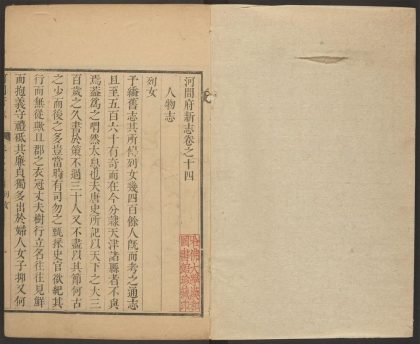 河間府新志卷之十四
人物志
列女
予繙舊志其所得列女幾四百餘人旣而考之通志
且至五百六十有奇而在今分隸天津諸縣者不與
焉蓋爲之喟然太息也夫唐史所記以天下之大三
百歲之久書於策不過三十人又不盡以其節何古
之少而後之多豈當時有司勿之甄採史官欲紀其
行而無從歟且郡之衣冠丈夫樹行立名往往見鮮
而抱義守禮砥其廉貞獨多出於婦人女子抑又何